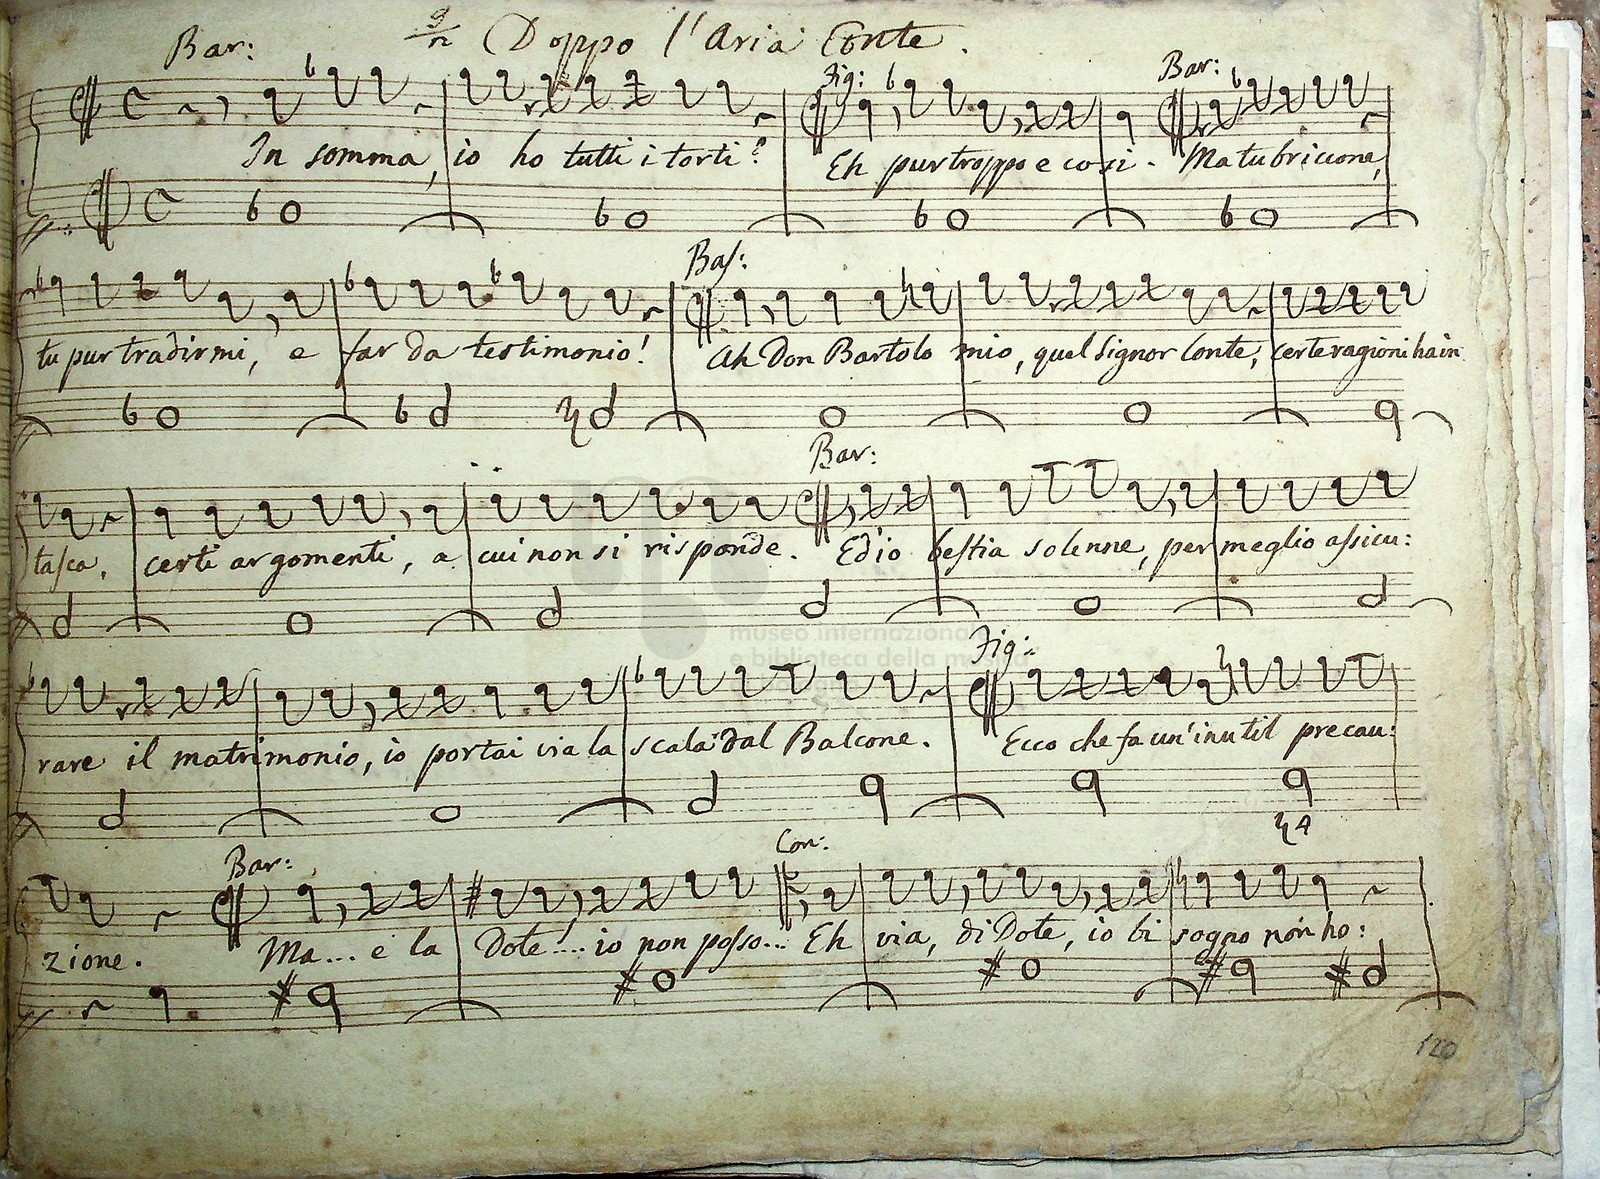 Bar: Doppo l'Aria Conte.
Fig: Bar:
In somma, io ho tutti i torti? Eh pur troppo e cosi. Ma tu briccone,
Bas:
tu pur tradirmi, e far da testimonio! Ah Don Bartolo mio, quel Signor Conte, certe ragioni ha in
Bar:
tasca, certi argomenti, a cui non si risponde. Ed io bestia solenne, per meglio assicu:
Fig:
rare il matrimonio, io portai via la scala dal Balcone. Ecco che fa un'inutil precau:
Bar: Con:
zione. Ma... e la Dote!... io non posso... Eh via, di Dote, io bisogno non ho:
120
museo internazionale
e biblioteca della musica